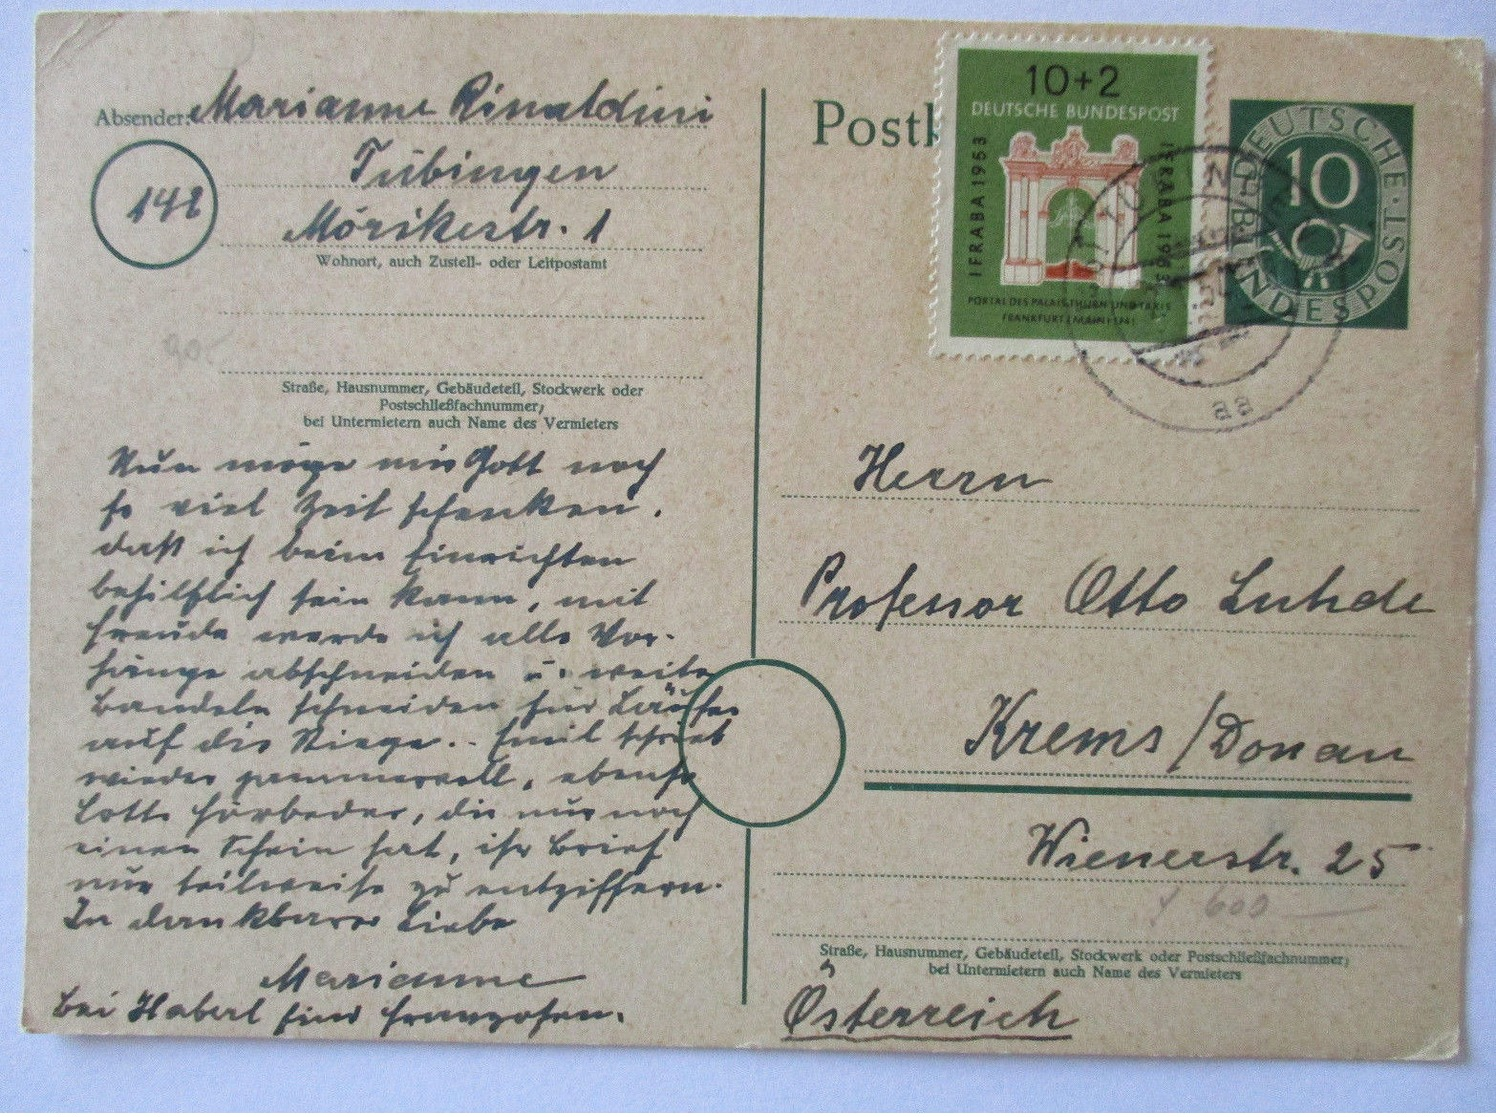 Absender: Marianne Rinaldini
Tübingen
14b
Mörikestr. 1
Wohnort, auch Zustell- oder Leitpostamt
90.-
Straße, Hausnummer, Gebäudeteil, Stockwerk oder
Postschließfachnummer;
bei Untermietern auch Name des Vermieters
Nun möge mir Gott noch
so viel Zeit schenken,
daß ich beim Einrichten
behilflich sein kann, mit
Freude werde ich alle Vor-
hänge abschneiden u. weite
Bandeln schneiden für Läufer
auf die Stiege.. Emil schrieb
wieder jammervoll, ebenso
Lotte, die nur noch
einen Schein hat, ihr Brief
nur teilweise zu entziffern.
In dankbarer Liebe
Marianne
Bei Haberl sind Franzosen.
Postk
10+2
DEUTSCHE BUNDESPOST
IFRABA 1953
IFRABA 1953
PORTAL DES PALAIS THURN UND TAXIS
FRANKFURT (MAIN) 1741
DEUTSCHE BUNDESPOST
10
aa
Herrn
Professor Otto Luhde
Krems/Donau
Wienerstr. 25
600
Straße, Hausnummer, Gebäudeteil, Stockwerk oder Postschließfachnummer;
bei Untermietern auch Name des Vermieters
Österreich